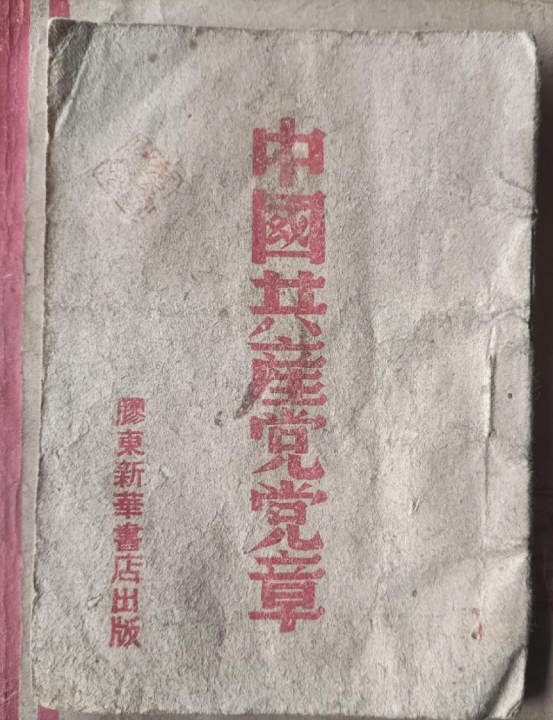 中國共產党党章
膠東新華書店出版